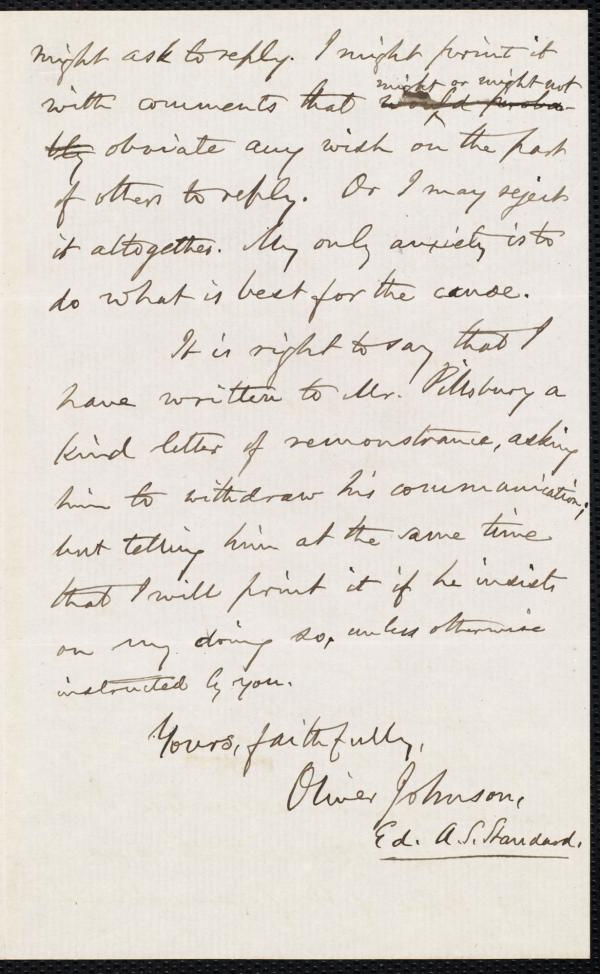 might ask to reply. I might print it
might or might not
with comments that would proba-
bly obviate any wish on the part
of others to reply. Or I may reject
it altogether. My only anxiety is to
do what is best for the cause.
It is right to say that I
have written to Mr. Pillsbury a
kind letter of remonstrance, asking
him to withdraw his communication;
but telling him at the same time
that I will print it if he insists
on my doing so, unless otherwise
instructed by you.
Yours, faithfully,
Oliver Johnson,
Ed. A. S. Standard.